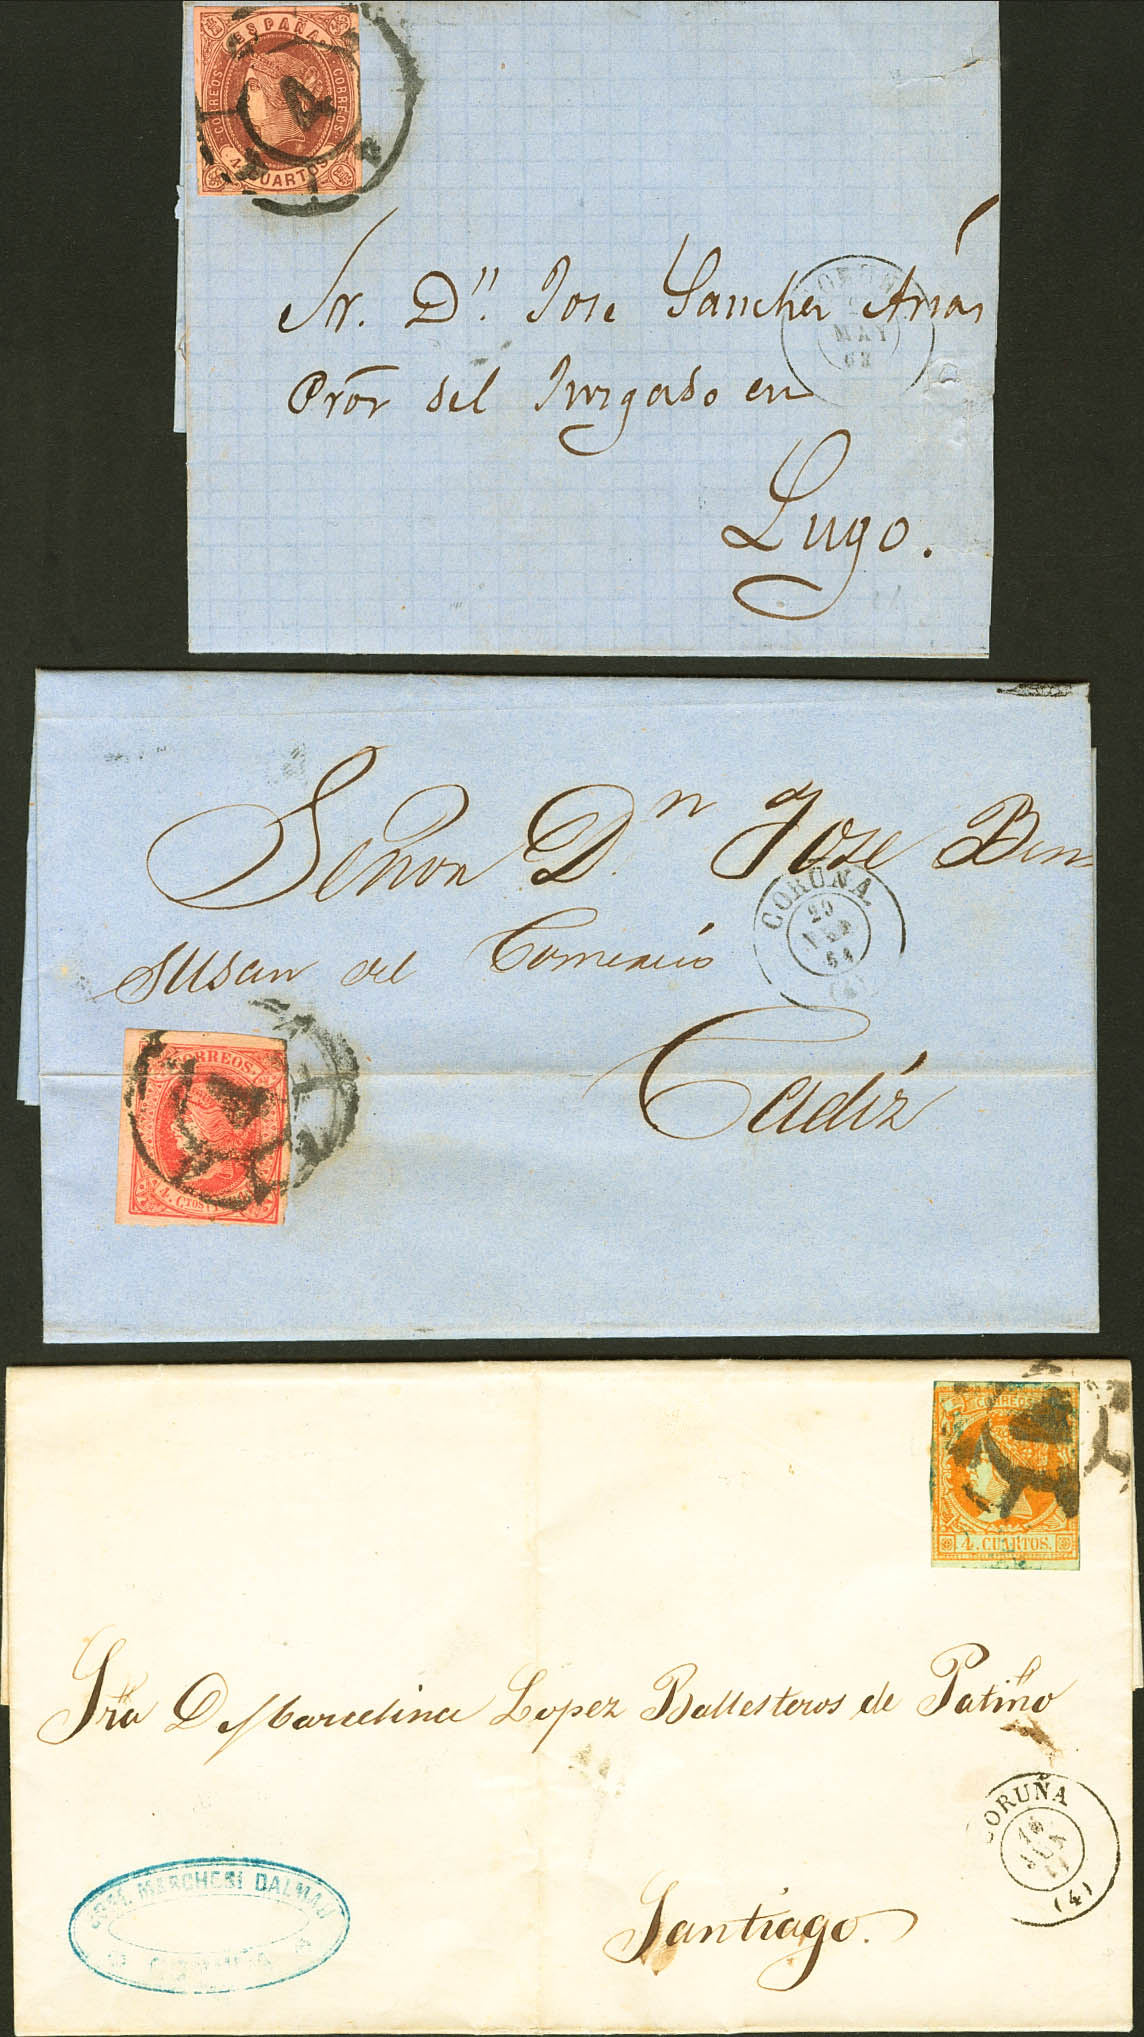 ESPAÑA
CORREOS CORREOS
4 CUARTOS
4
Sr. Dn. Jose Sanchez Arias
Pror del Juzgado en
Lugo.
MAY
63
Señor Dn. Jose Ben
susan del Comercio
Cadiz
CORUÑA
20
64
(4)
CORREOS.
4
4. CTOS
CORREOS
4. CUARTOS.
Sra D Marcelina Lopez Ballesteros de Patiño
Santiago.
CORUÑA
16
(4)
JOSE MARCHESI DALMAU
CORUÑA